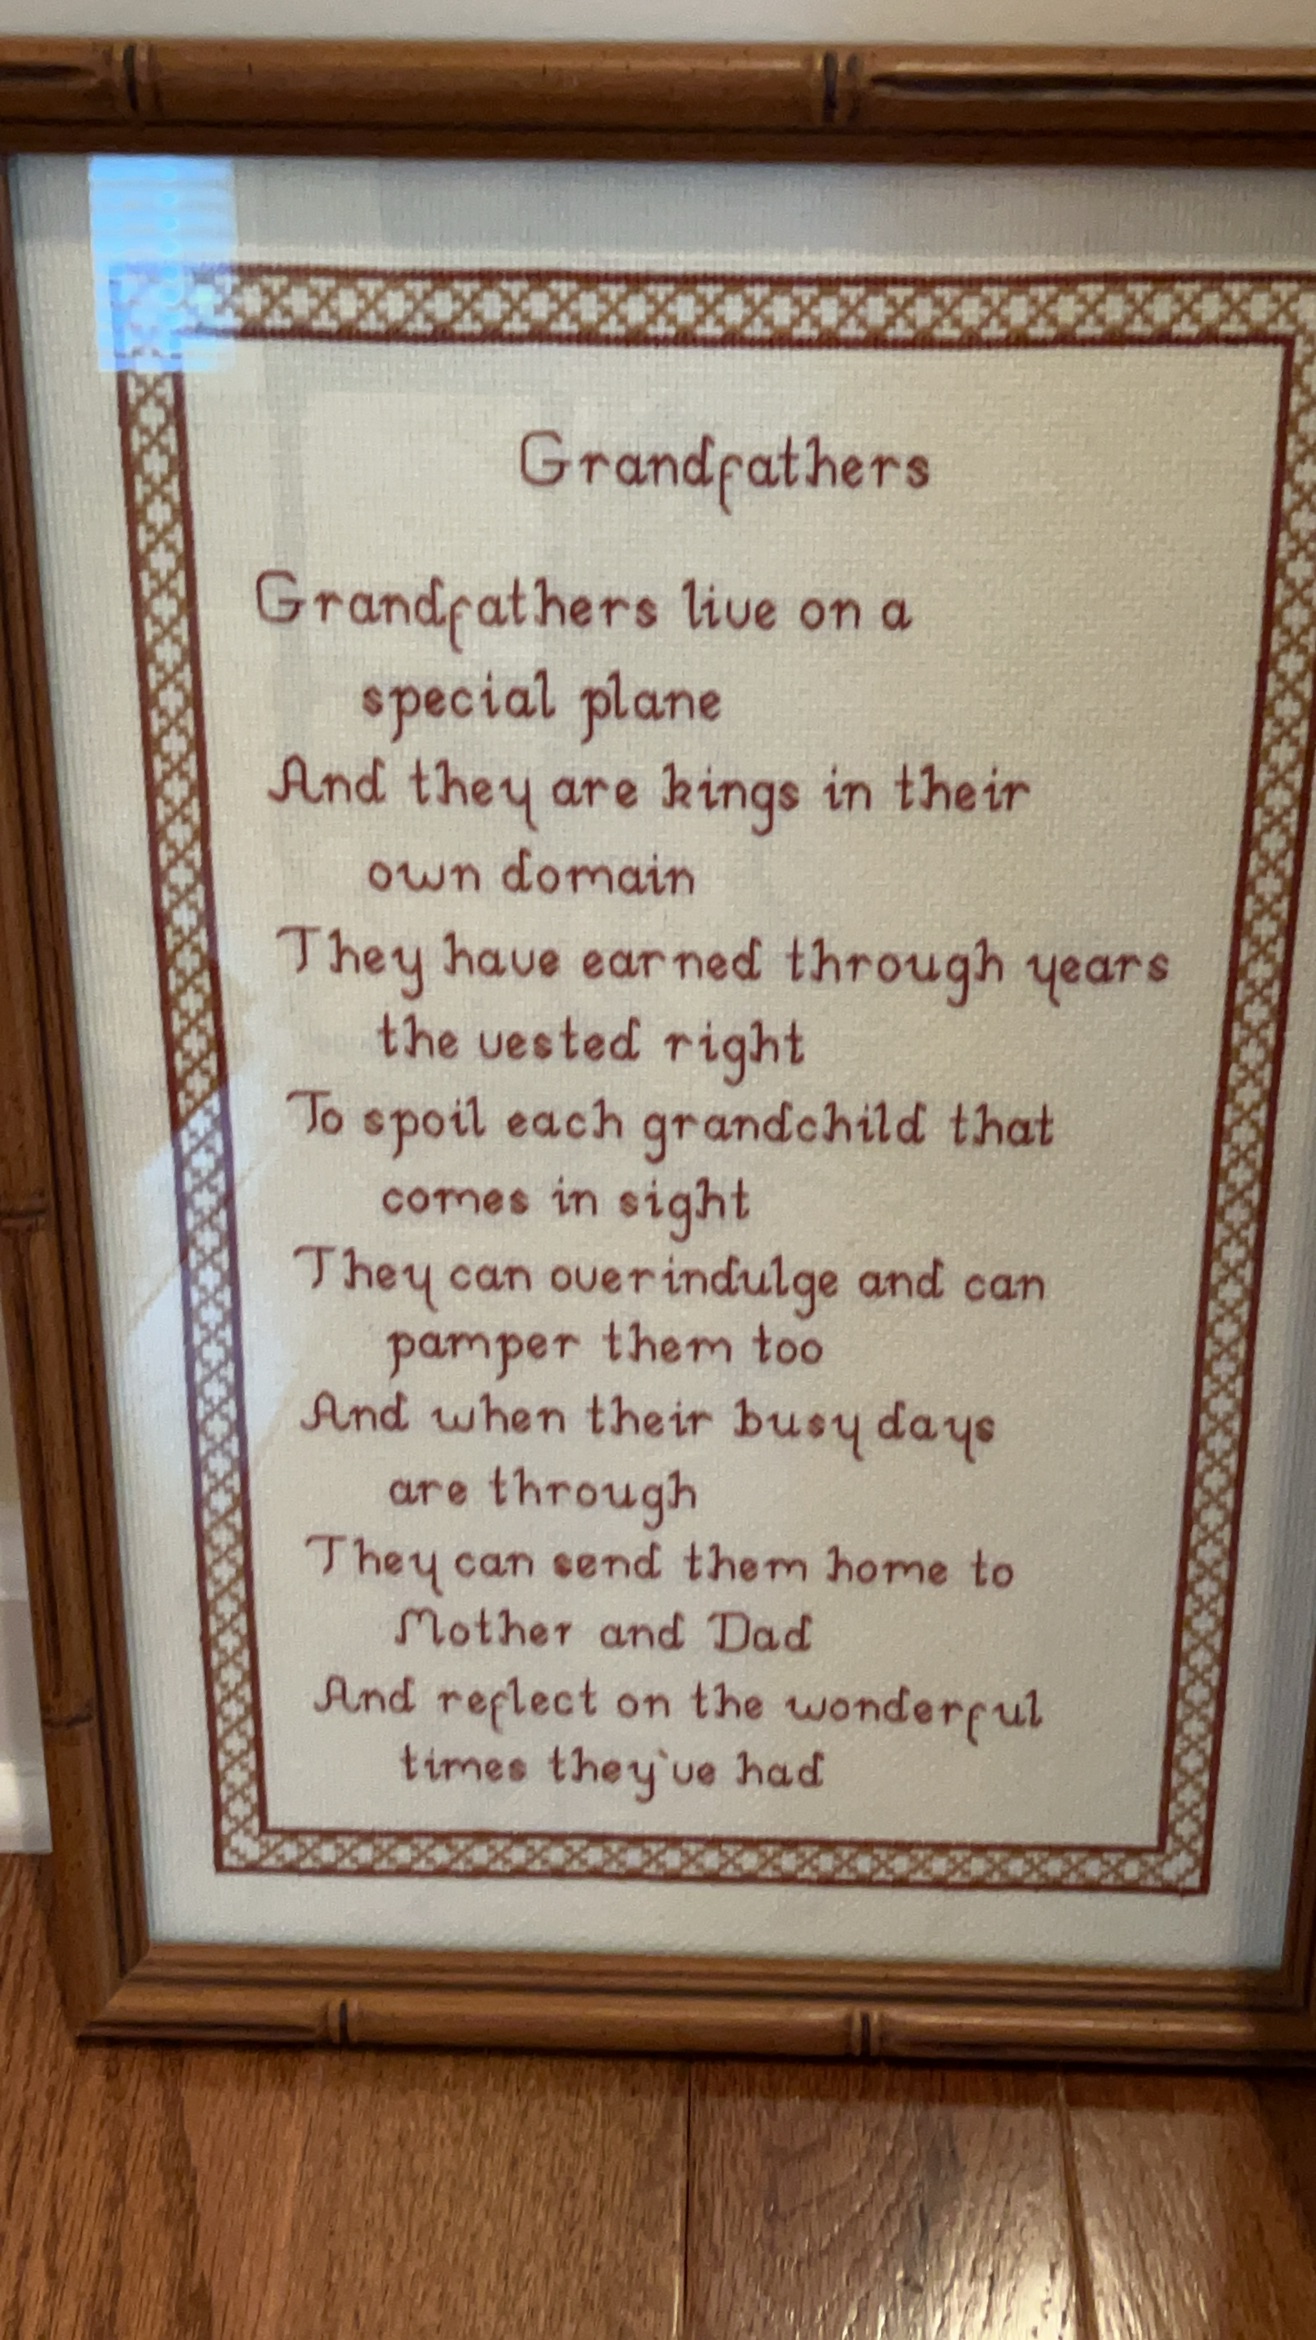 Grandfathers
Grandfathers live on a
special plane
And they are kings in their
own domain
They have earned through years
the vested right
To spoil each grandchild that
comes in sight
They can overindulge and can
pamper them too
And when their busy days
are through
They can send them home to
Mother and Dad
And reflect on the wonderful
times they've had